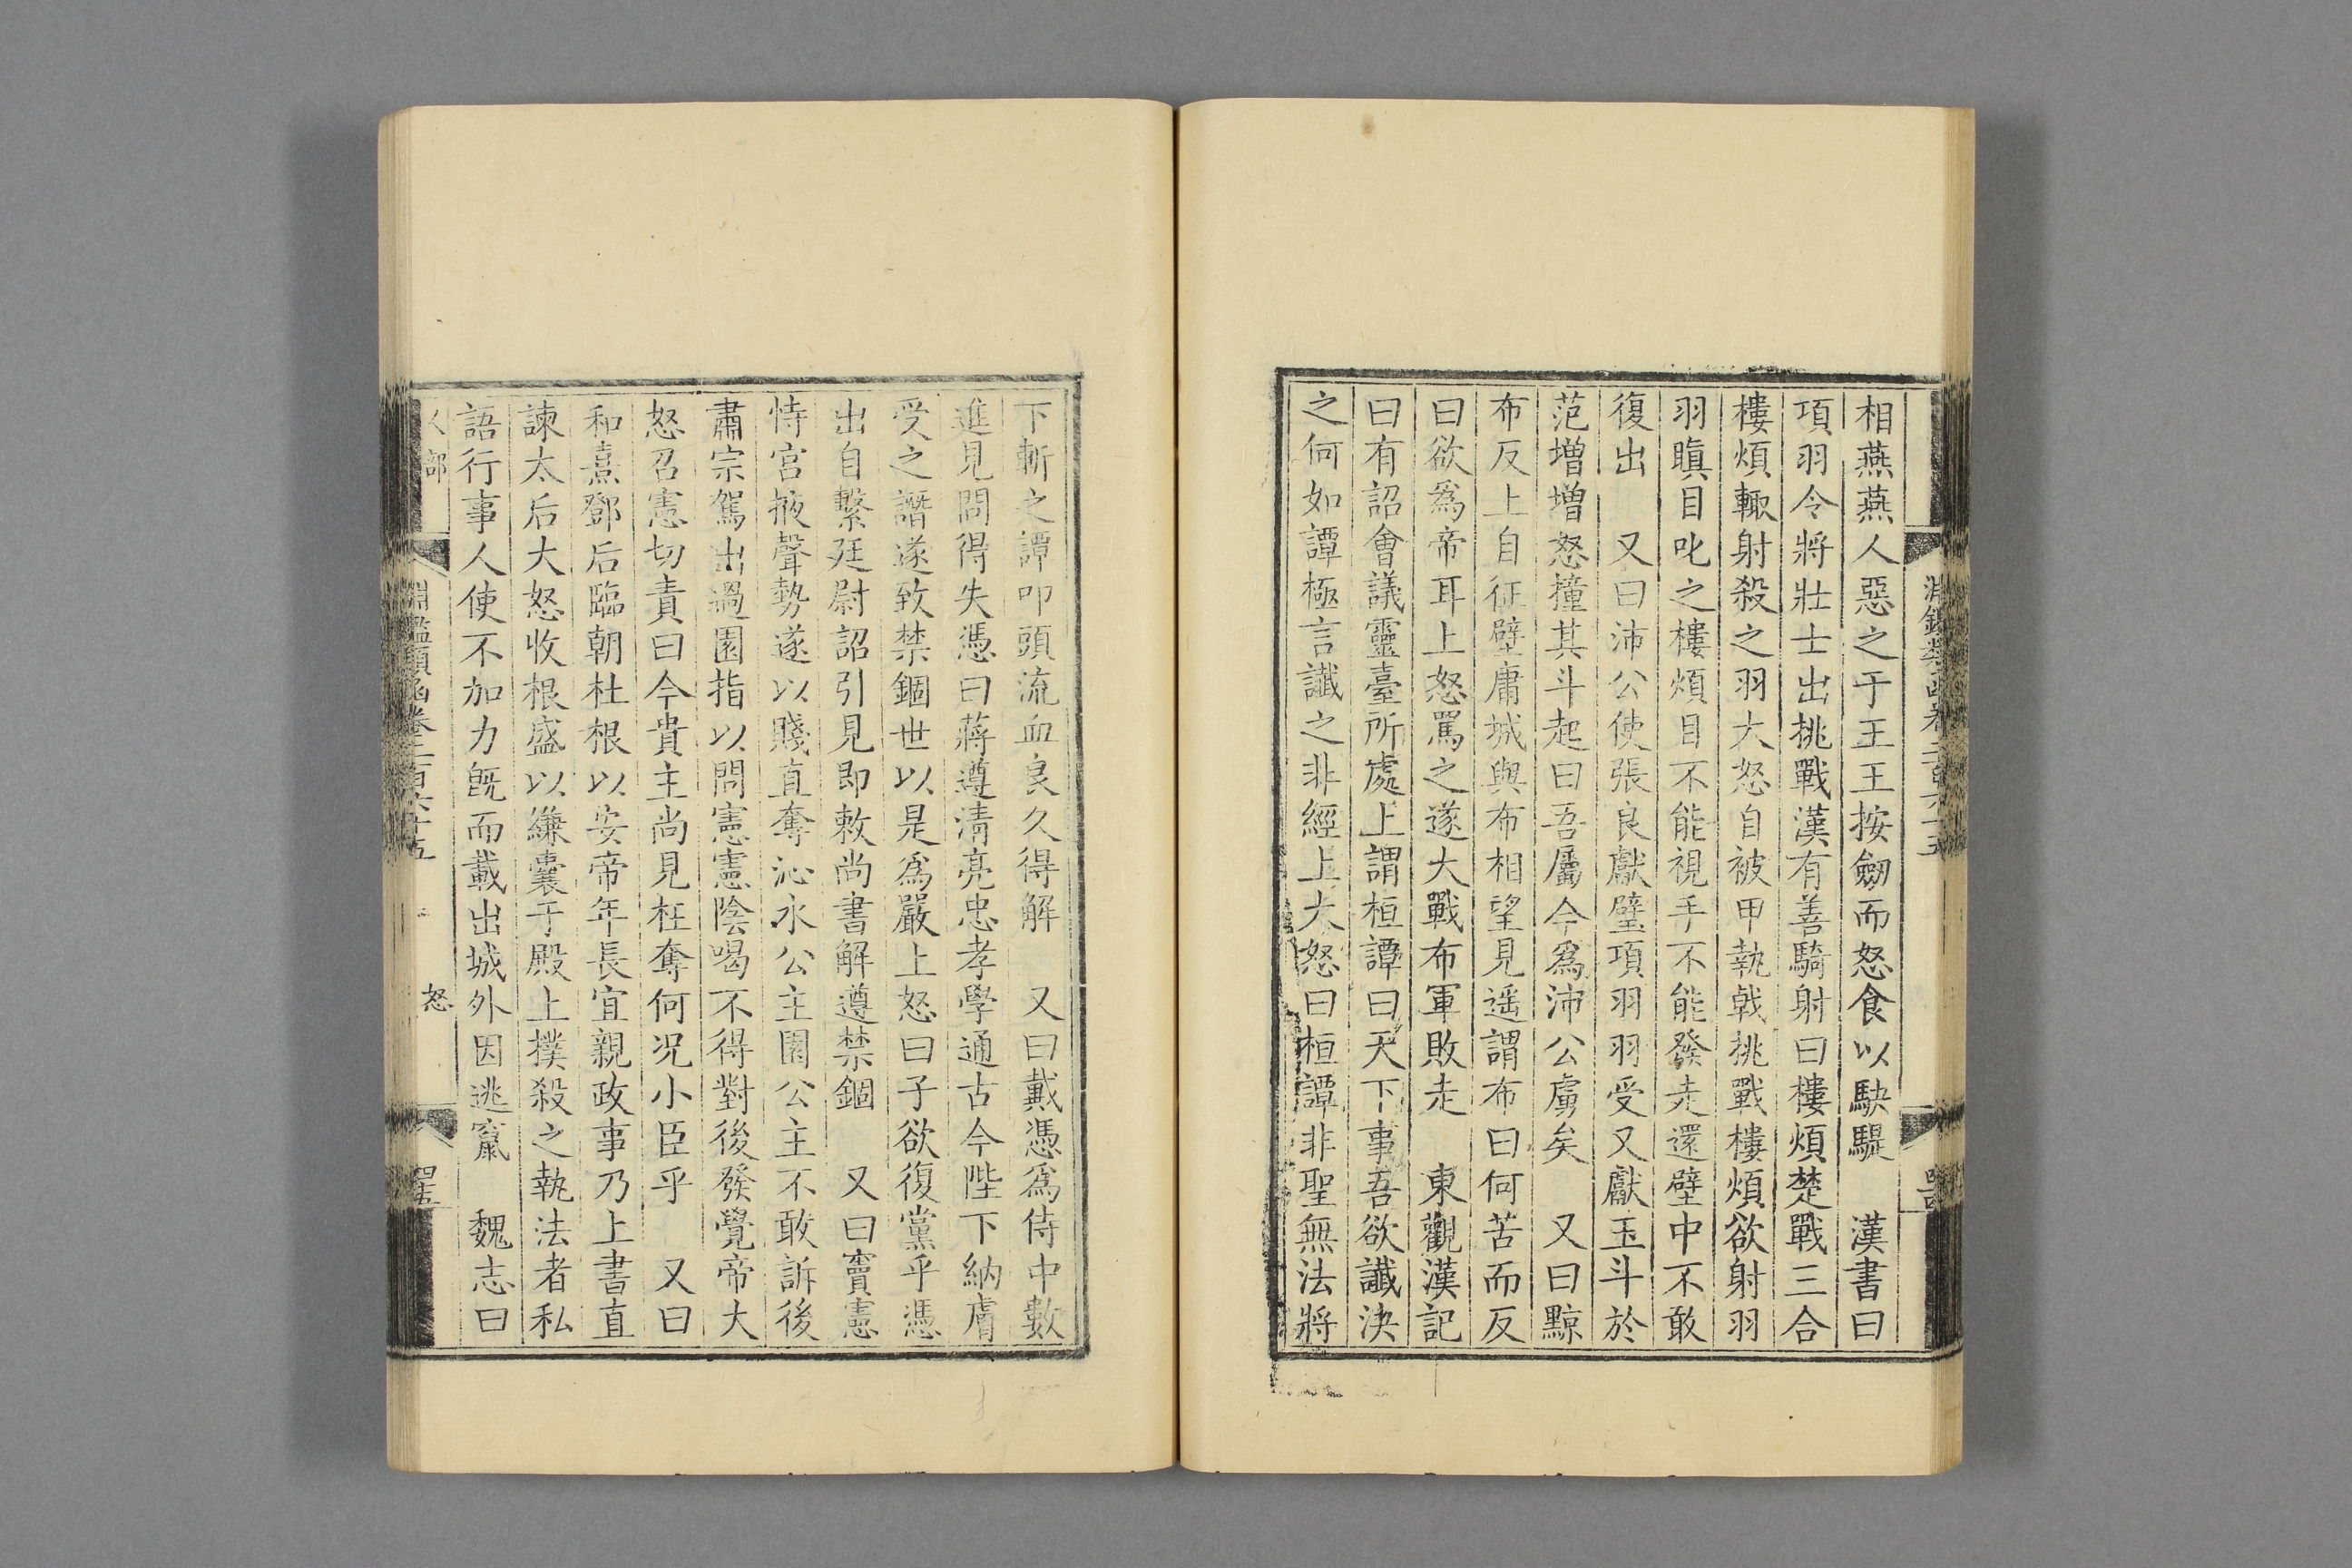 相燕燕人惡之于王王按劒而怒食以駃騠　漢書曰
項羽令將壯士出挑戰漢有善騎射曰樓煩楚戰三合
樓煩輙射殺之羽大怒自被甲執戟挑戰樓煩欲射羽
羽瞋目叱之樓煩目不能視手不能發走還壁中不敢
復出　又曰沛公使張良獻璧項羽羽受又獻玉斗於
范增增怒撞其斗起曰吾屬今爲沛公虜矣　又曰黥
布反上自征壁庸城與布相望見遥謂布曰何苦而反
曰欲爲帝耳上怒罵之遂大戰布軍敗走　東觀漢記
曰有詔會議靈臺所處上謂桓譚曰天下事吾欲讖決
之何如譚極言讖之非經上大怒曰桓譚非聖無法將
下斬之譚叩頭流血良久得解　又曰戴憑爲侍中數
進見問得失憑曰蔣遵清亮忠孝學通古今陛下納膚
受之譖遂致禁錮世以是爲嚴上怒曰子欲復黨乎憑
出自繫廷尉詔引見即敕尚書解遵禁錮　又曰竇憲
恃宮掖聲勢遂以賤直奪沁水公主園公主不敢訴後
肅宗駕出過園指以問憲憲陰喝不得對後發覺帝大
怒召憲切責曰今貴主尚見枉奪何况小臣乎　又曰
和熹鄧后臨朝杜根以安帝年長宜親政事乃上書直
諫太后大怒收根盛以縑囊于殿上撲殺之執法者私
語行事人使不加力旣而載出城外因逃竄　魏志曰
人部　淵鑑類函卷二百六十五　怒